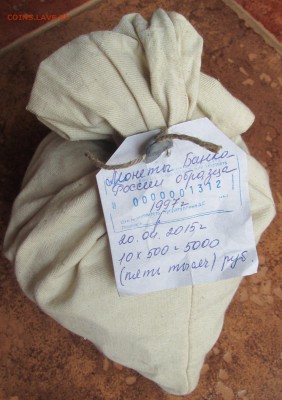 COINS.LAVE.RU
Монеты Банка
России образца
0000001312
1997 г
20.04.2015 г
10 х 500 = 5000
(пять тысяч) руб